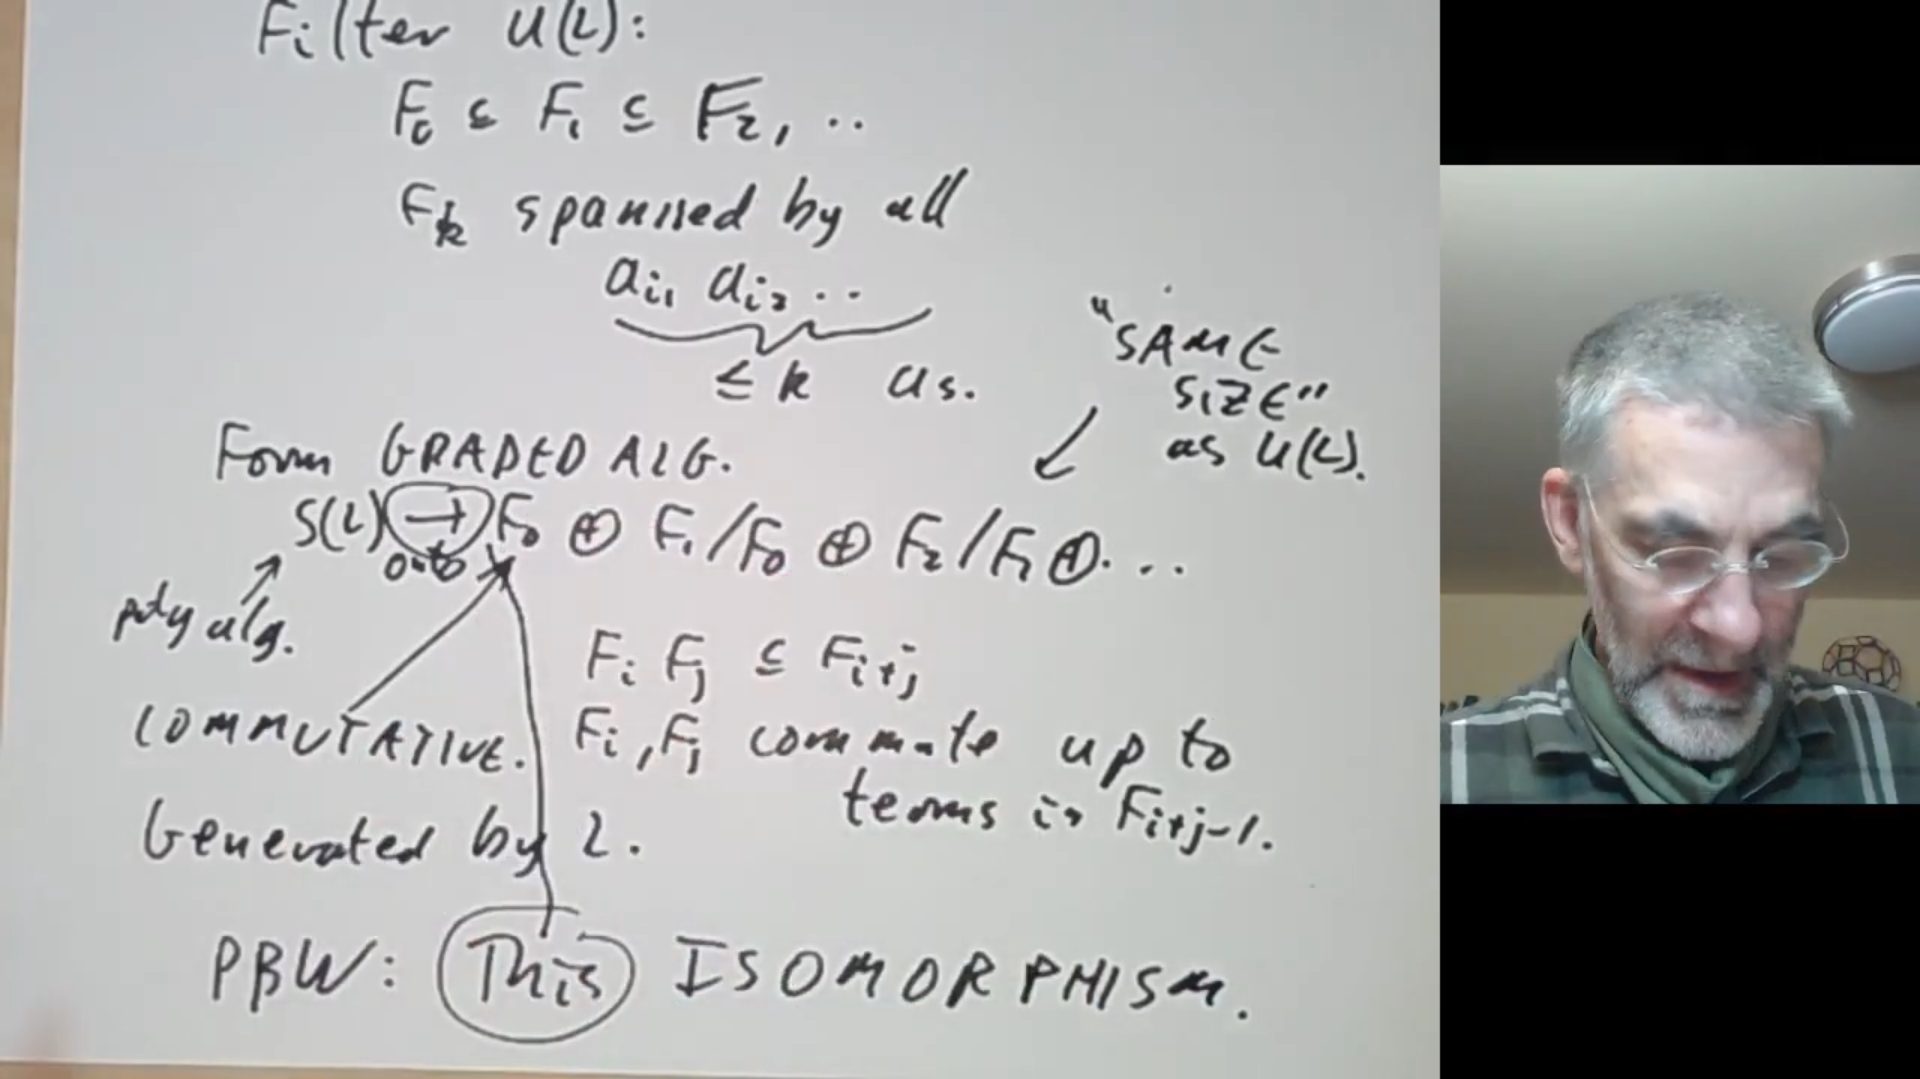 Filter U(L):
F₀ ⊆ F₁ ⊆ F₂, ..
Fₖ spanned by all
aᵢ₁ aᵢ₂ ..
≤ k as.
"SAME
SIZE"
as U(L).
Form GRADED ALG.
S(L) → F₀ ⊕ F₁/F₀ ⊕ F₂/F₁ ⊕ ...
onto
poly alg.
Fᵢ Fⱼ ⊆ Fᵢ₊ⱼ
COMMUTATIVE. Fᵢ, Fⱼ commute up to
terms in Fᵢ₊ⱼ₋₁.
Generated by L.
PBW: This ISOMORPHISM.